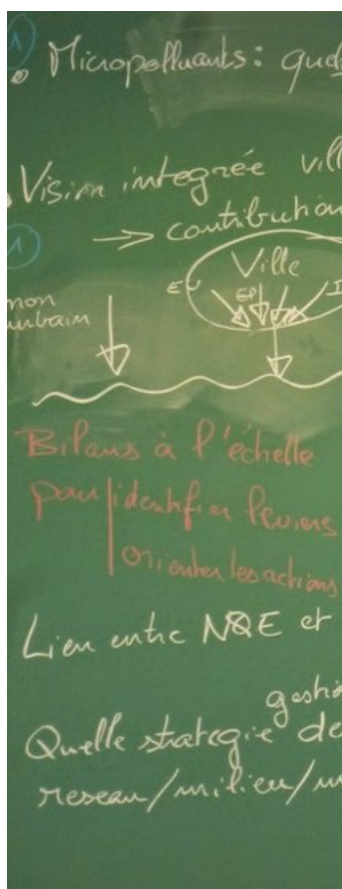 1
Micropolluants: quels
Vision intégrée vill
1
→ contribution
Ville
non
urbain
EU
EP
I
Bilans à l'échelle
pour identifier leviers
orienter les actions
Lien entre NQE et
gestio
Quelle strategie de
reseau/milieu/